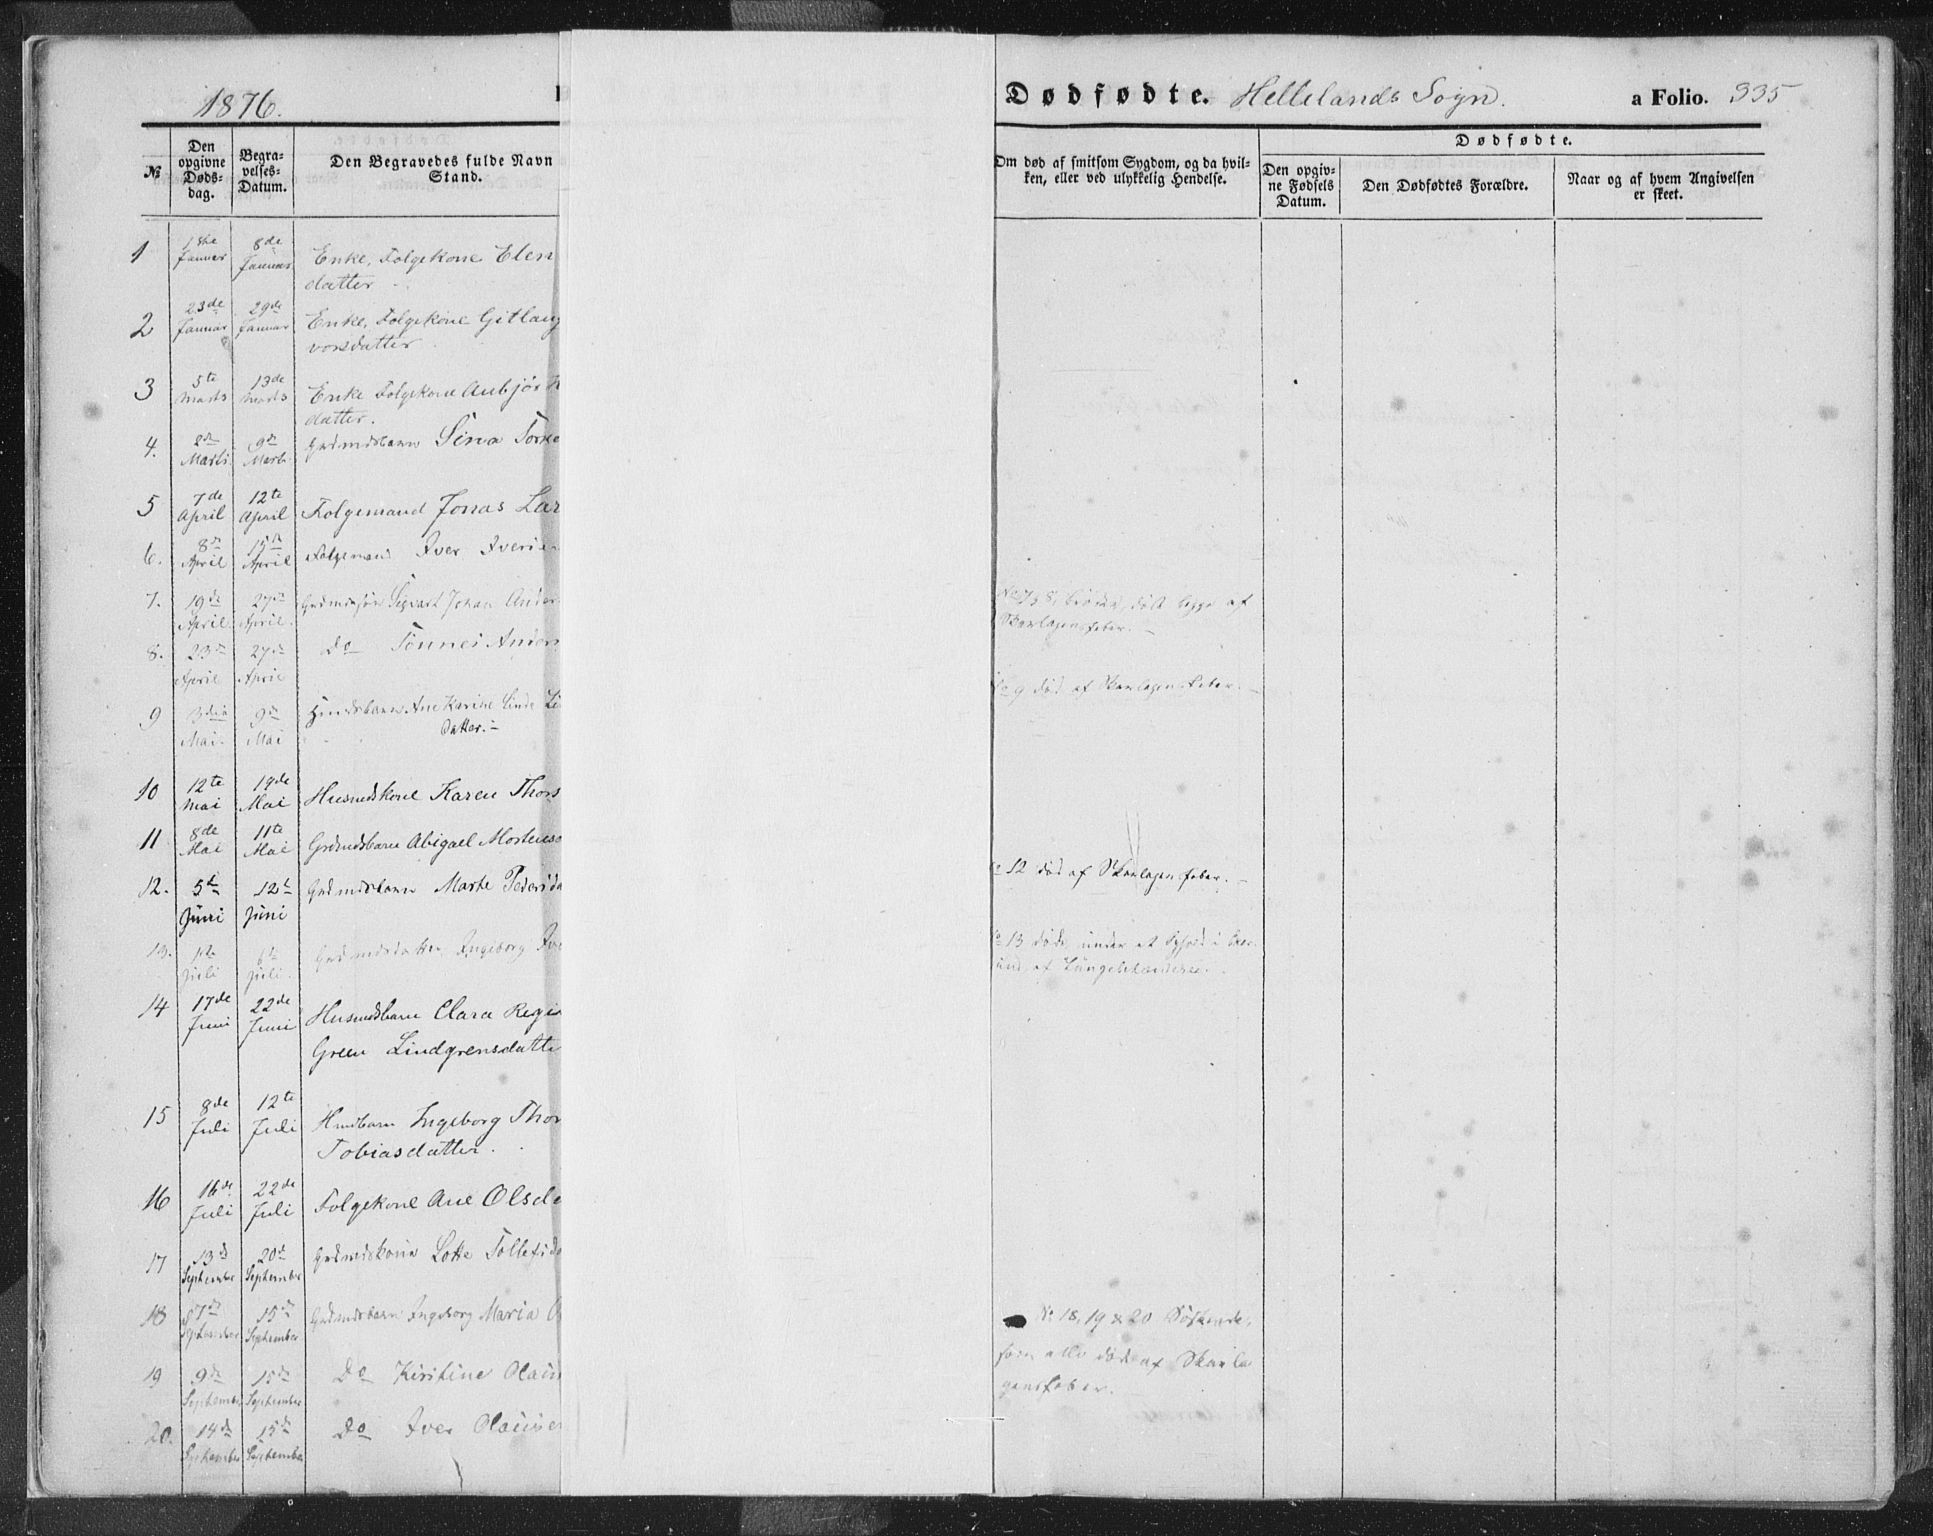 1876.
Dødfødte. Hellelands Sogn. a Folio. 335
№
Den opgivne Døds-dag.
Begra-velses-Datum.
Den Begravedes fulde Navn
Stand.
Om død af smitsom Sygdom, og da hvil-
ken, eller ved ulykkelig Hendelse.
Dødfødte.
Den opgiv-
ne Fødsels
Datum.
Den Dødfødtes Forældre.
Naar og af hvem Angivelsen
er skeet.
1 Januar 8de Januar Enke, Folgekone Elen
datter
2 23de Januar 29de Januar Enke, Folgekone Gitlaug
vorsdatter
3 5te Marts 13de Marts Enke Folgekone Anbjør
datter.
4. 2de Marts 9de Marts Grdmdsbarn Sina
5 7de April 12te April Folgemand Jonas Lar
6. 8de April 15de April Folgemand Iver Iverse
7. 19de April 27de April Grdmdssøn Sigvart Johan Ander
No 7 & 8, Brødre, død begge af
Skarlagensfeber.
8. 23de April 27de April Do Tønnes Anders
9 3die Mai 9de Mai Ane Karine Linde
Datter.
No 9 død af Skarlagensfeber.
10 12te Mai 19de Mai Husmdskone Karen Thors
11 8de Mai 11te Mai Grdmdsbarn Abigael Mortens
12. 5te Juni 12te Juni Grdmdsbarn Marte Peders
12 død af Skarlagensfeber.
13. 1te Juli 6te Juli Grdmdsdatter Ingeborg
13 døde under et Ophold i
af Lungebetændelse.
14 17de Juni 22de Juni Husmdsbarn Clara Regi
Green Lindgrensdatte
15 8de Juli 12te Juli Hmdbarn Ingeborg Thor
Tobiasdatter.
16 16de Juli 22de Juli Folgekone Ane Olsda
17 13de September 20de September Grdmdskone Lotte Tollefsda
18 7de September 15de September Grdmdsbarn Ingeborg Maria O
No 18, 19 & 20 Søskende,
som alle døde af Skarla
gensfeber.
19 9de September 15de September Do Kirstine Olaus
20. 14de September 15de September Do Iver Olausen